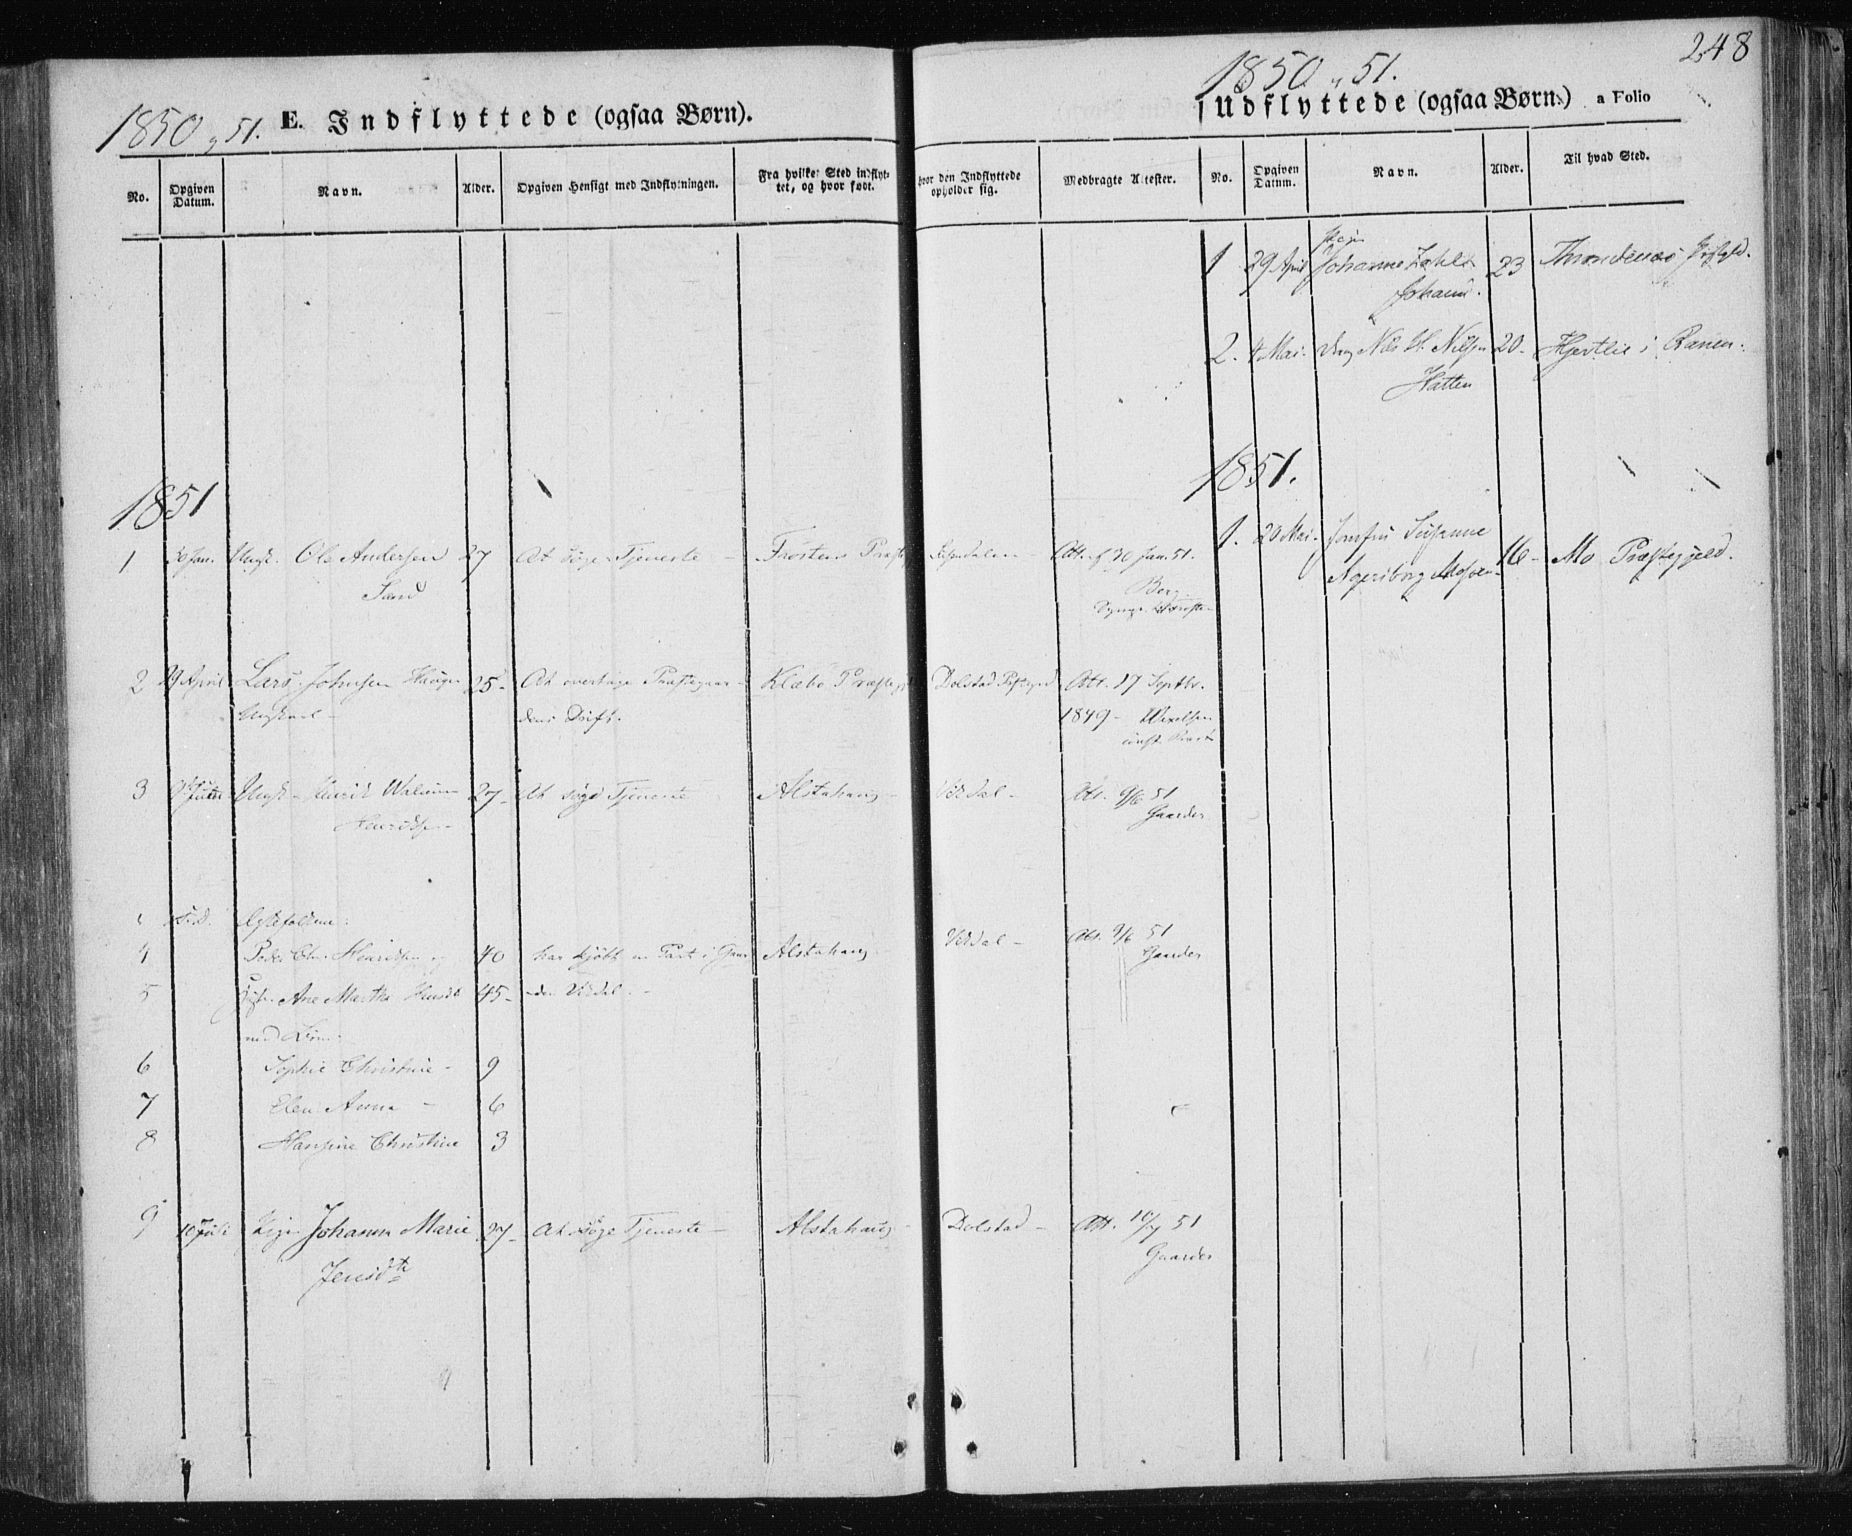 248
1850 og 51.
E. Indflyttede (ogsaa Børn).
No.
Opgiven Datum.
Navn.
Alder.
Opgiven Hensigt med Indflytningen.
Fra hvilket Sted indflyttet, og hvor født.
hvor den Indflyttede opholder sig.
Medbragte Attester.
1851
1 30 Jan. Ungk. Ole Andersen 27 At søge Tjeneste Frosten Præsteg Att. af 20 Jan. 51.
Sand Berg
2 29 April Lars Johnsen Haugen 25 At overtage Præstegaar- Klæbo Præstegj Dolstad Præstegjeld Att. 17 Septbr.
Ungkarl dens Drift. 1849 - Wexelsen
3 Ungk. Henrik Walsøe 27 At søge Tjeneste Alstahaug Vikdal Att. 9/6 51
Henriksen Gaarder
Ægtefolkene:
4 Peder Chr. Henriksen og 40 har kjøbt en Part i Gaar- Alstahaug Vikdal Att. 9/6 51
Gaarder
5 Ane Martha 45 den Vikdal.
med Børn:
6 Sophie Christine 9
7 Elen Anna 6
8 Hansine Christine 3
9 10 Juli Pige Johanna Marie 27 At søge Tjeneste Alstahaug Dolstad Att. 10/7 51
Jensdtr Gaarder
1850 og 51.
Udflyttede (ogsaa Børn.) a Folio
No.
Opgiven Datum.
Navn.
Alder.
Til hvad Sted.
Pige
1 29 April Johanna Zahl 23 Throndenæs Præstgjd.
Johansd.
2. 4 Mai. Ung Nils H. Nilsen 20 Hjertlie i Ranen.
Hatten
1851.
1. 20 Mai. Jomfru Susanne
Agersborg 16 Mo Præstegjeld.